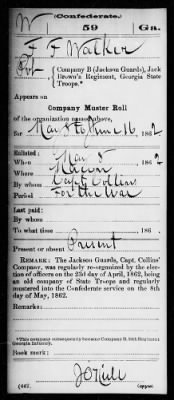 (Confederate.)
W 59 Ga.
F F Walker
Pvt., Company B (Jackson Guards), Jack
Brown's Regiment, Georgia State
Troops.*
Appears on
Company Muster Roll
of the organization named above,
for May 8 to June 16, 1862
Enlisted:
When May 8, 1862
Where Macon
By whom Capt Collins
Period For the War
Last paid:
By whom
To what time 186 .
Present or absent Present
REMARK: The Jackson Guards, Capt. Collins'
Company, was regularly re-organized by the elec-
tion of officers on the 23d day of April, 1862, being
an old company of State Troops and regularly
mustered into the Confederate service on the 8th
day of May, 1862.
Remarks:
*This company subsequently became Company
Georgia Infantry.
Book mark:
(642) Copyist.